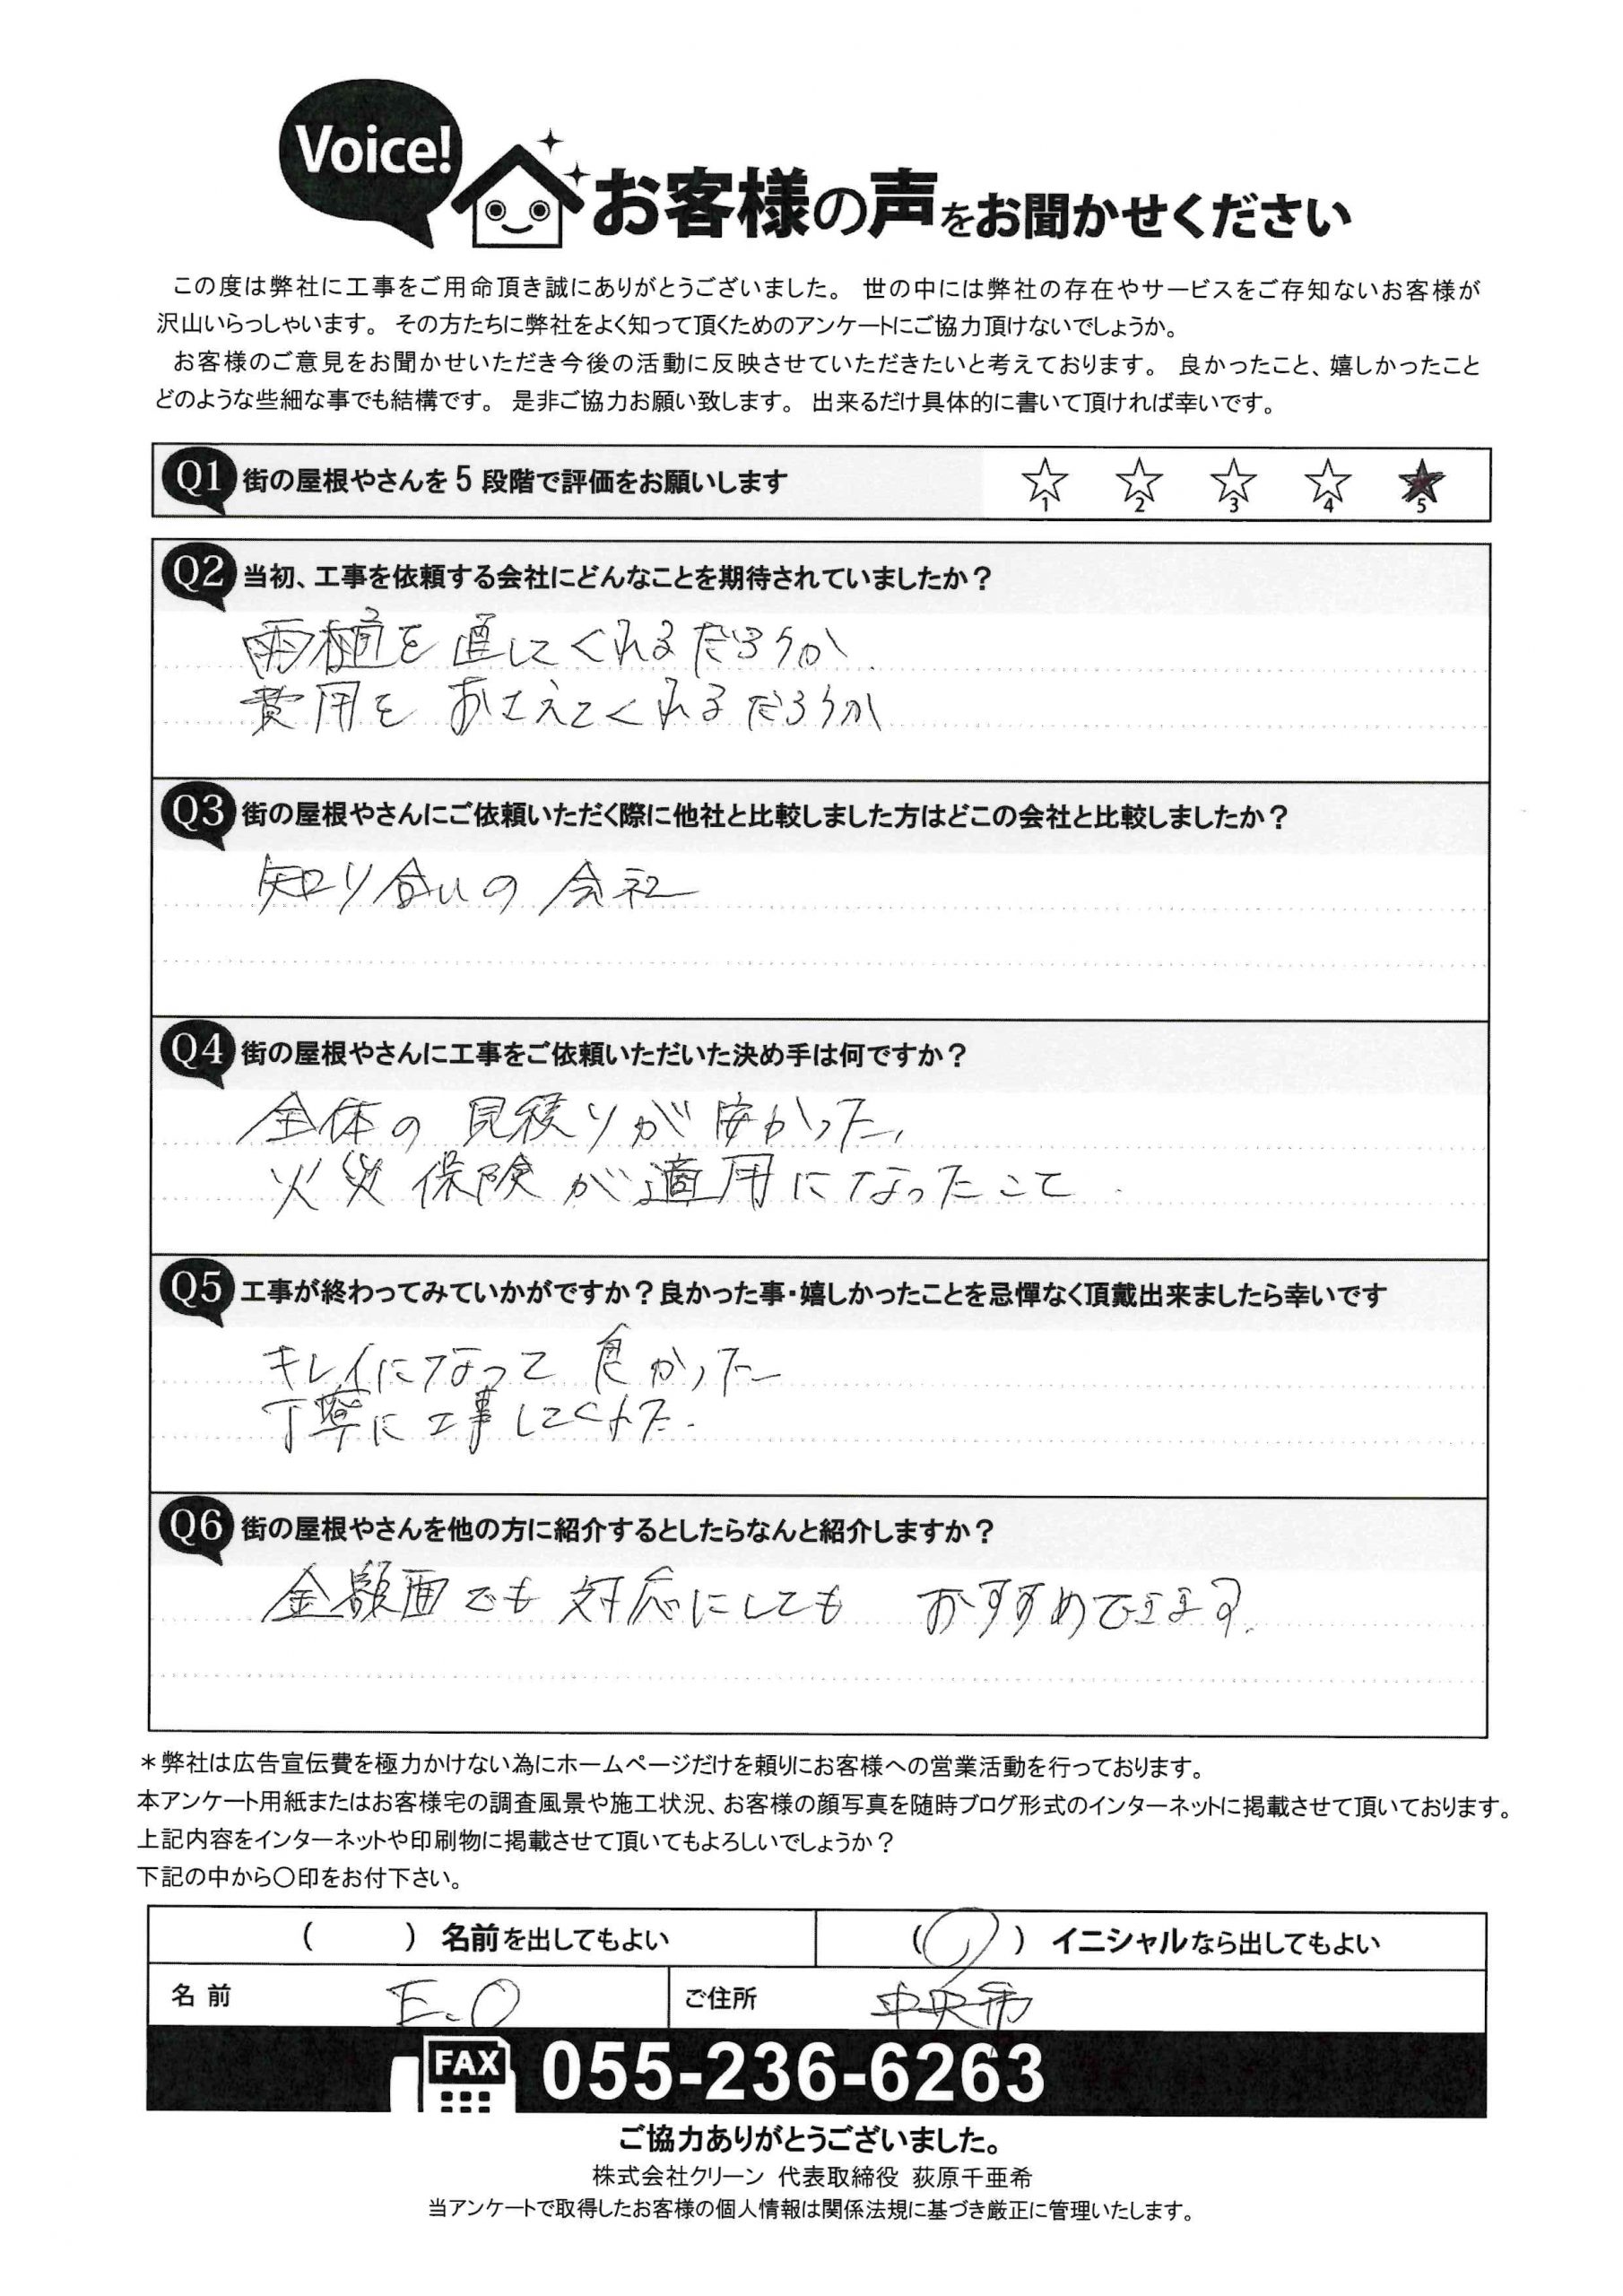 Voice!
お客様の声をお聞かせください
この度は弊社に工事をご用命頂き誠にありがとうございました。 世の中には弊社の存在やサービスをご存知ないお客様が
沢山いらっしゃいます。 その方たちに弊社をよく知って頂くためのアンケートにご協力頂けないでしょうか。
お客様のご意見をお聞かせいただき今後の活動に反映させていただきたいと考えております。 良かったこと、嬉しかったこと
どのような些細な事でも結構です。 是非ご協力お願い致します。 出来るだけ具体的に書いて頂ければ幸いです。
Q1 街の屋根やさんを5段階で評価をお願いします ☆1 ☆2 ☆3 ☆4 ★5
Q2 当初、工事を依頼する会社にどんなことを期待されていましたか?
雨樋を直してくれるだろうか
費用をおさえてくれるだろうか
Q3 街の屋根やさんにご依頼いただく際に他社と比較しました方はどこの会社と比較しましたか?
知り合いの会社
Q4 街の屋根やさんに工事をご依頼いただいた決め手は何ですか?
全体の見積りが安かった、
火災保険が適用になったこと
Q5 工事が終わってみていかがですか?良かった事・嬉しかったことを忌憚なく頂戴出来ましたら幸いです
キレイになって良かった
丁寧に工事してくれた.
Q6 街の屋根やさんを他の方に紹介するとしたらなんと紹介しますか?
金額面でも対応にしても おすすめできます.
*弊社は広告宣伝費を極力かけない為にホームページだけを頼りにお客様への営業活動を行っております。
本アンケート用紙またはお客様宅の調査風景や施工状況、お客様の顔写真を随時ブログ形式のインターネットに掲載させて頂いております。
上記内容をインターネットや印刷物に掲載させて頂いてもよろしいでしょうか?
下記の中から〇印をお付下さい。
( ) 名前を出してもよい (〇) イニシャルなら出してもよい
名前 E.O ご住所 中央市
FAX 055-236-6263
ご協力ありがとうございました。
株式会社クリーン 代表取締役 荻原千亜希
当アンケートで取得したお客様の個人情報は関係法規に基づき厳正に管理いたします。